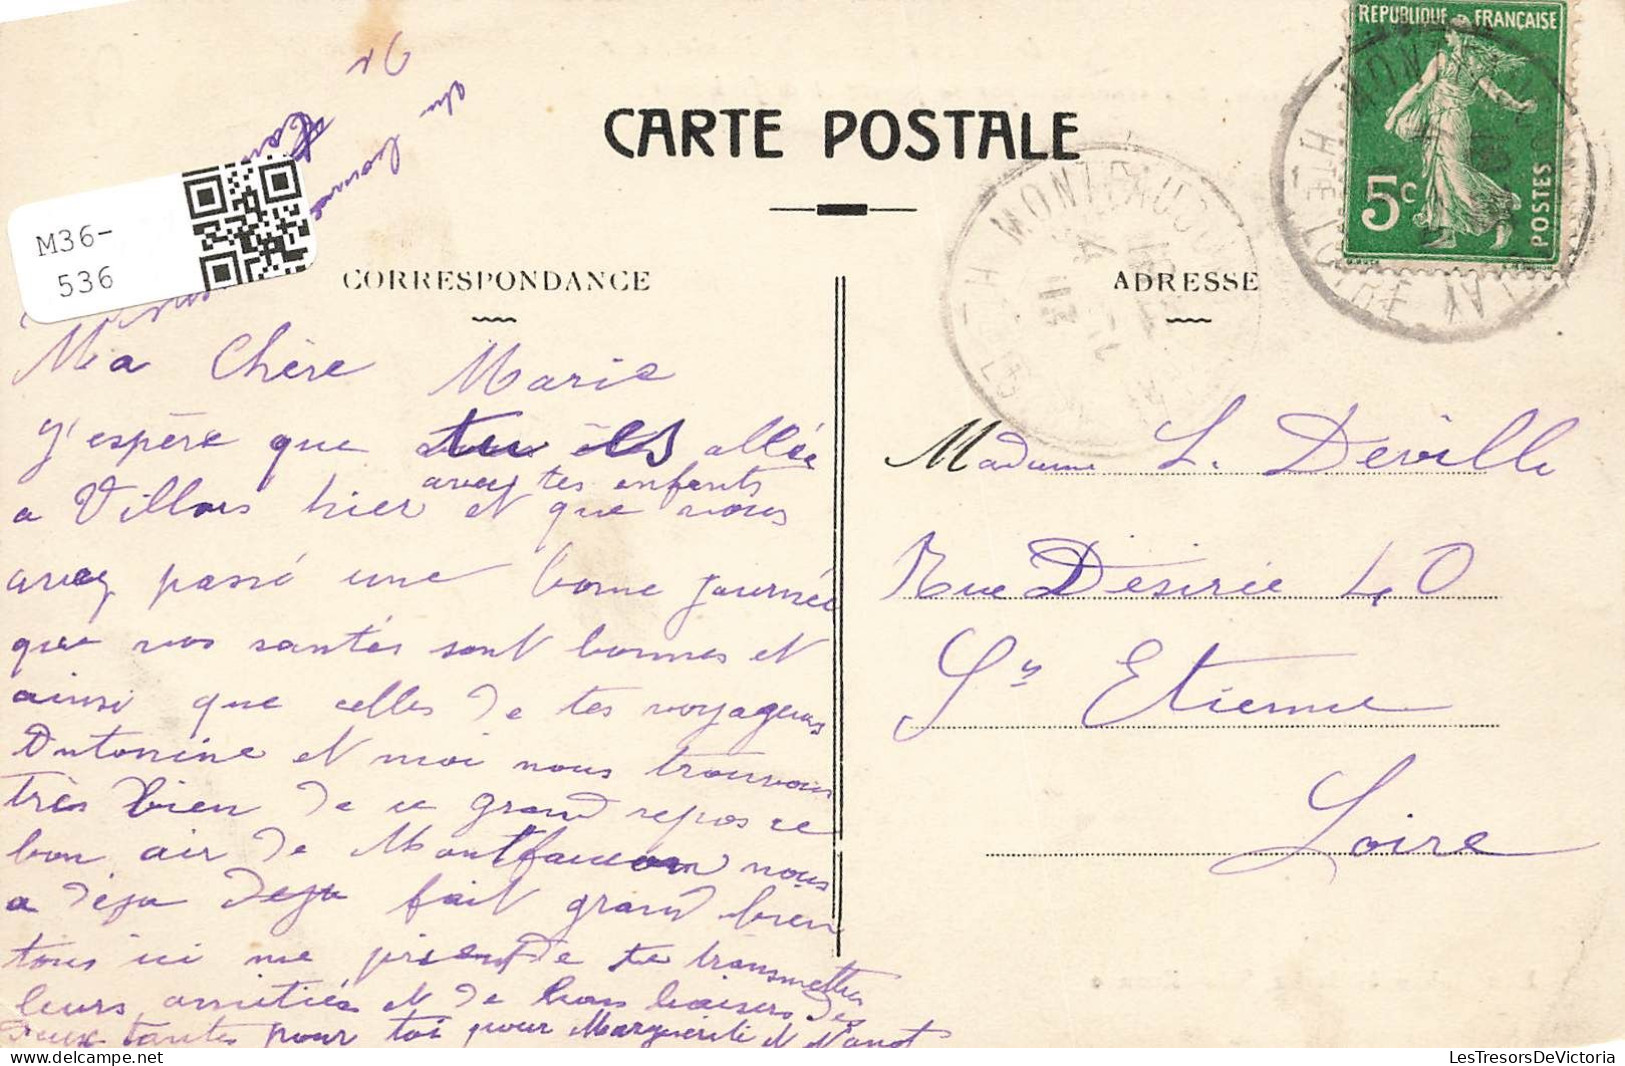 RÉPUBLIQUE FRANÇAISE
5c
POSTES
CARTE POSTALE
M36-
536
CORRESPONDANCE
ADRESSE
MONTFAUCON
Hte LOIRE
Ma Chère Marie
j'espère que tu es allée
avec tes enfants
a Villars hier et que vous
avez passé une bonne journée
que vos santés sont bonnes et
ainsi que celles de tes voyageurs
Antonine et moi nous trouvons
très bien de ce grand repos ce
bon air de Montfaucon nous
a déja deja fait grand bien
tous ici me prient de te transmettre
leurs amitiés et de bons baisers des
deux tantes pour toi pour Marguerite et Nanot
Madame L. Deville
Rue Désirée 40
St Etienne
Loire
LesTresorsDeVictoria